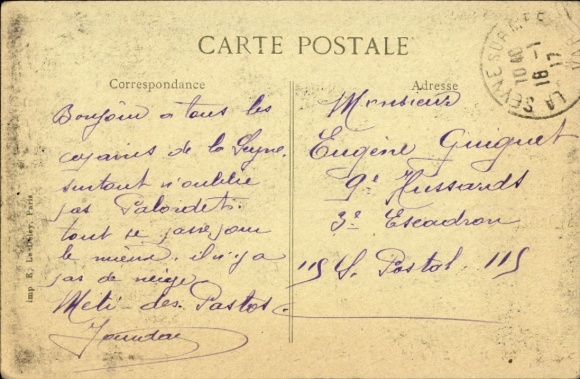 CARTE POSTALE
Correspondance
Bonjour à tous les
copains de la Seyne.
surtout n'oublie
pas Palondet.
tout se passe pour
le mieux. il n'y a
pas de neige
Meti-des-Pastos.
Adresse
Monsieur
Eugène Guiguet
9e Hussards
3e Escadron
115 S. Postal. 115
LA SEYNE SUR MER
1040
18-1
17
VAR
imp. E. Le Deley, Paris